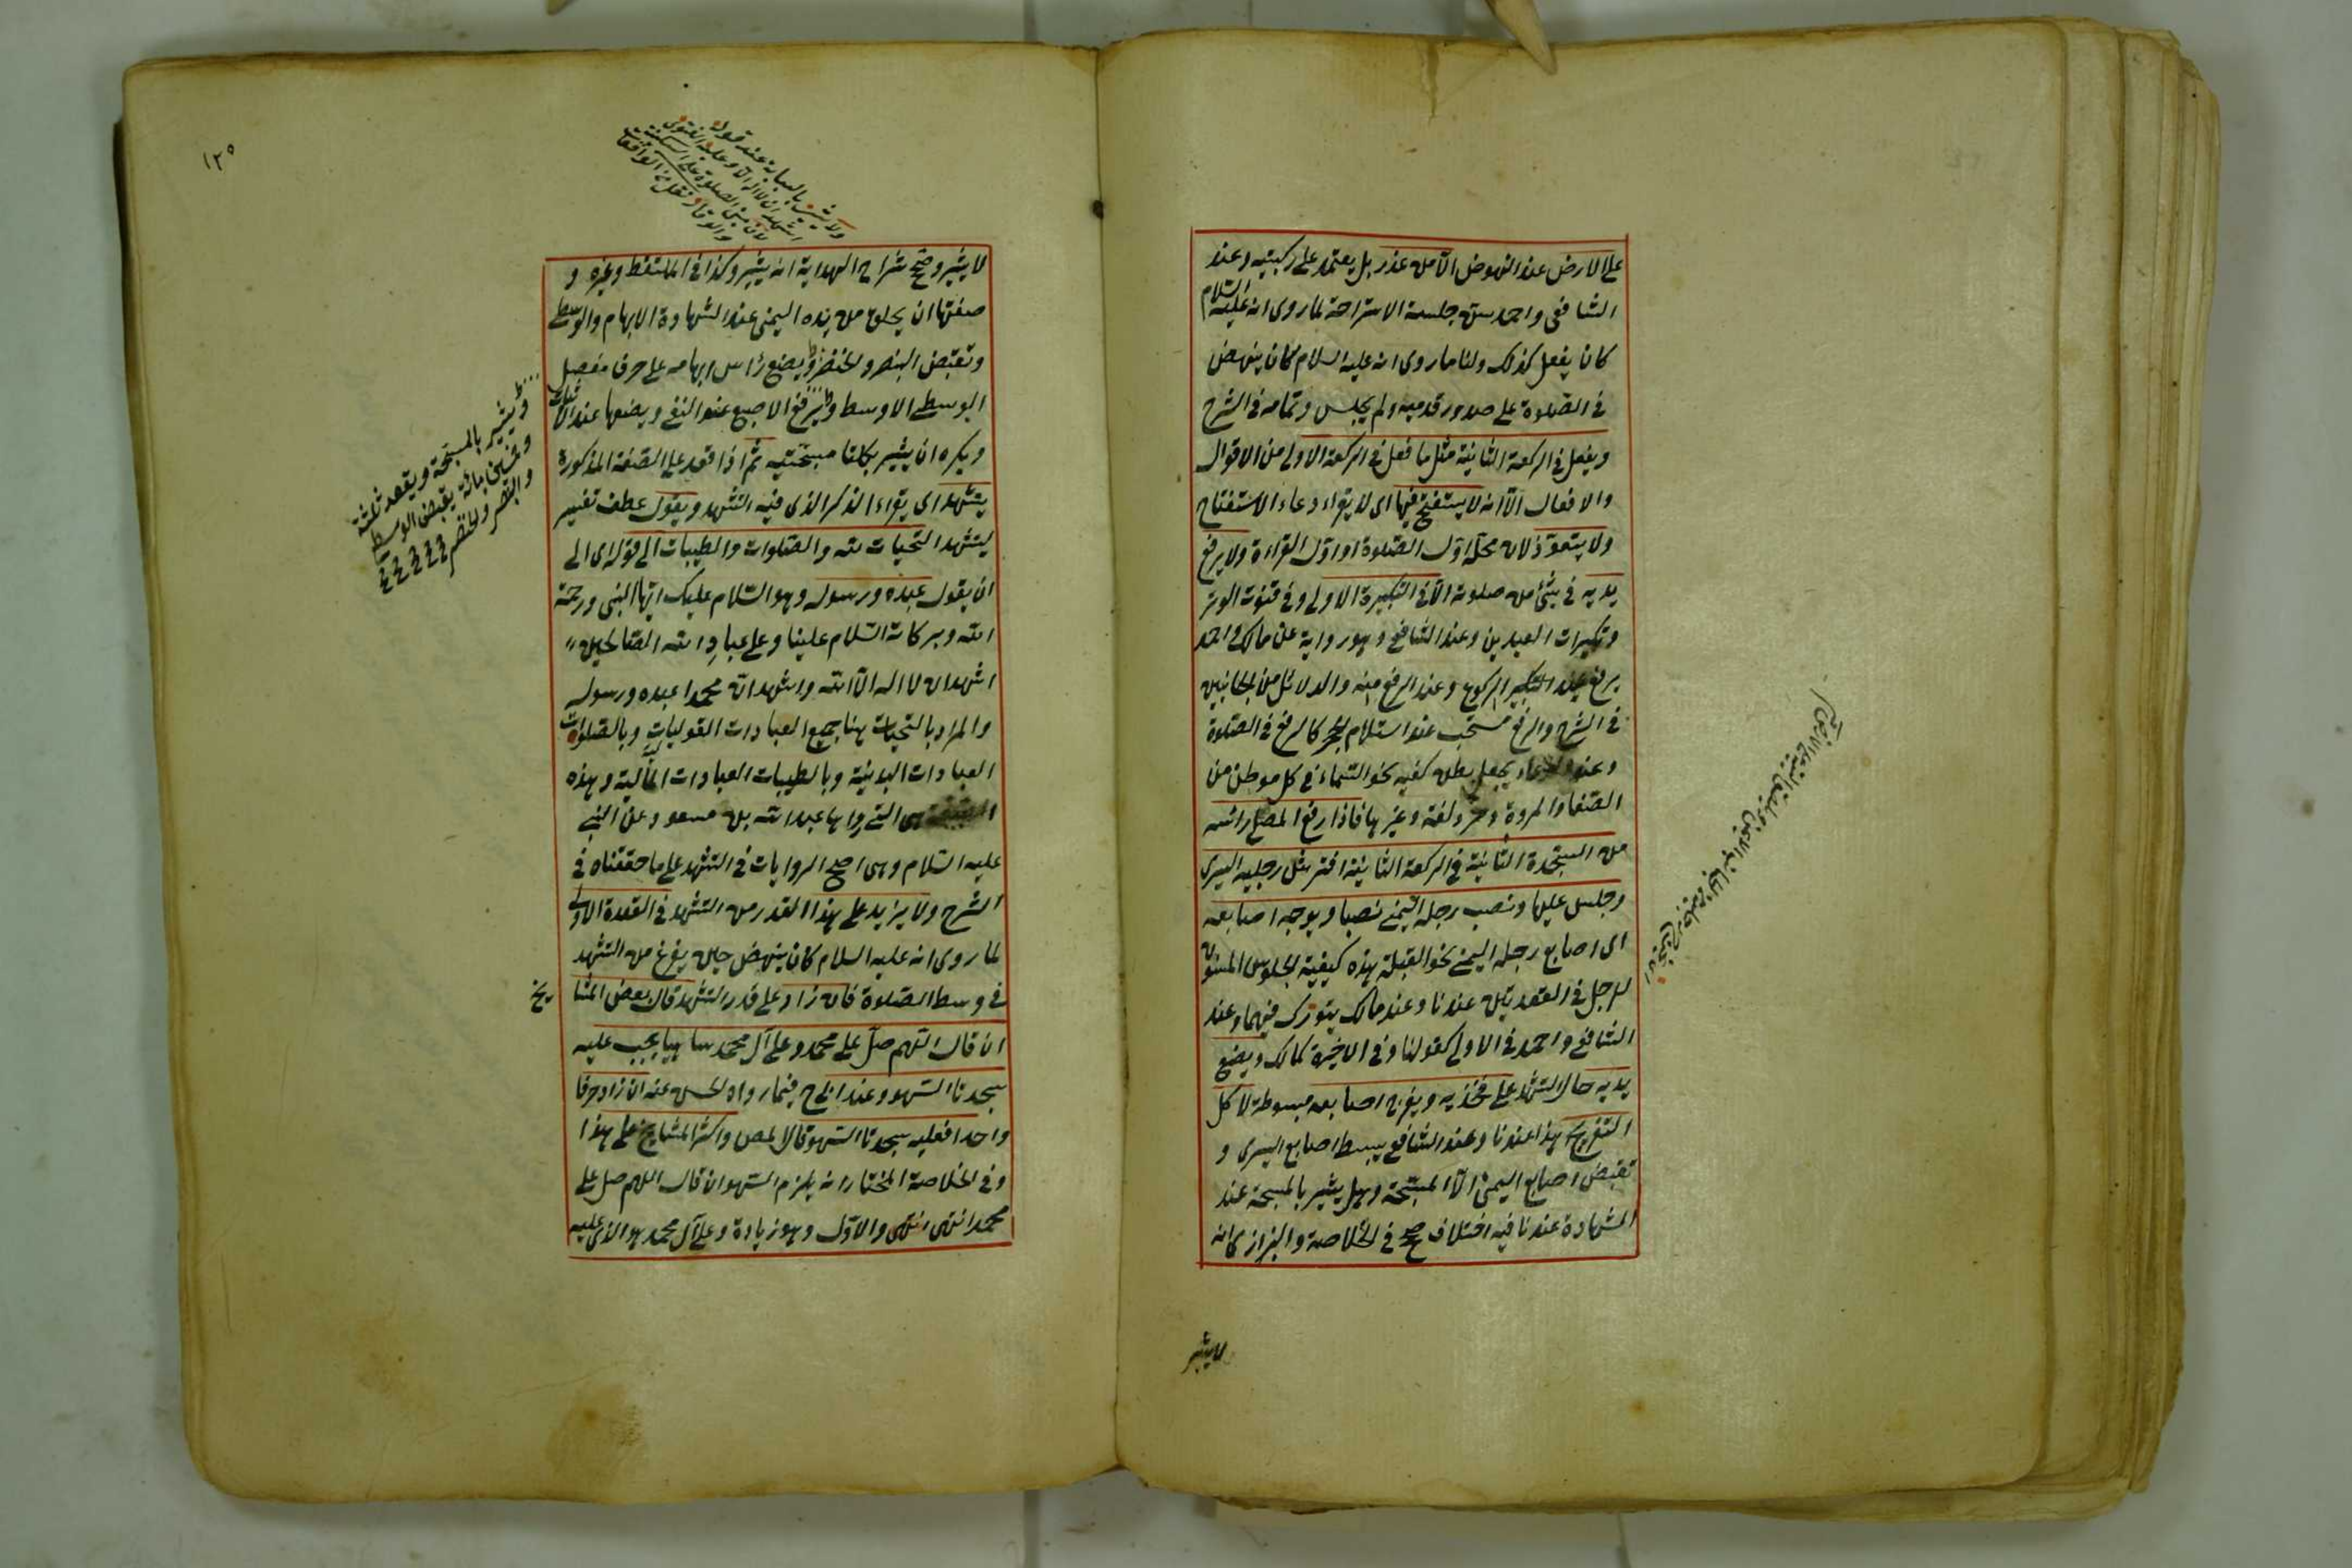 على الارض عند النهوض الا من عذر بل يعتمد على ركبتيه وعند
الشافعي واحمد سن جلسة الاستراحة لما روى انه عليه السلام
كان يفعل كذلك ولنا ما روى انه عليه السلام كان ينهض
في الصلوة على صدور قدميه ولم يجلس وتمامه في الشرح
ويفعل في الركعة الثانية مثل ما فعل في الركعة الاولى من الاقوال
والافعال الا انه لا يستفتح فيها اى لا يقراء دعاء الاستفتاح
ولا يتعوذ لان محله اول الصلوة او اول القراءة ولا يرفع
يديه في شئ من صلوته الا في التكبيرة الاولى وفي قنوت الوتر
وتكبيرات العيدين وعند الشافعي وهو رواية عن مالك واحمد
يرفع عند التكبير الركوع وعند الرفع منه والدلائل من الجانبين
في الشرح والرفع مستحب عند استلام الحجر كالرفع في الصلوة
وعند الدعاء يجعل بطن كفيه نحو السماء في كل موطن من
الصفا والمروة ومزدلفة وغيرها فاذا رفع المصلى رائسه
من السجدة الثانية في الركعة الثانية افترش رجليه اليسرى
وجلس عليها ونصب رجله اليمنى نصبا ويوجه اصابعه
اى اصابع رجله اليمنى نحو القبلة بهذه كيفية الجلوس المسنون
للرجل في القعدتين عندنا وعند مالك يتورك فيهما وعند
الشافعي واحمد في الاولى كقولنا وفي الاخيرة كمالك ويضع
يديه حال التشهد على فخذيه ويفرج اصابعه مبسوطة لا كل
التفريج هذا عندنا وعند الشافعي يبسط اصابع اليسرى و
تقبض اصابع اليمنى الا المسبحة وهل يشير بالمسبحة عند
الشهادة عندنا فيه اختلاف صح في الخلاصة والبزازي انه
لا يشير
١٢٥
ولا يشير بالسبابة عند قوله
اشهد ان لا اله الا الله وعليه الفتوى
لان مبنى الصلوة على السكينة
والوقار نقل من الواقعات
لا يشير وصحح شراح الهداية انه يشير وكذا في الملتقط وغيره و
صفتها ان يحلق من يده اليمنى عند الشهادة الابهام والوسطى
وتقبض البنصر والخنصر ويضع رأس ابهامه على حرف مفصل
الوسطى الاوسط ويرفع الاصبع عند النفي ويضعها عند الاثبات
ويكره ان يشير بكلتا مسبحتيه ثم اذا قعد على الصفة المذكورة
يتشهد اى يقراء الذكر الذى فيه التشهد ويقول عطف تفسير
ليتشهد التحيات لله والصلوات والطيبات الى قوله اى الى
ان يقول عبده ورسوله وهو السلام عليك ايها النبي ورحمة
الله وبركاته السلام علينا وعلى عباد الله الصالحين
اشهد ان لا اله الا الله واشهد ان محمدا عبده ورسوله
والمراد بالتحيات هنا جميع العبادات القوليات وبالصلوات
العبادات البدنية وبالطيبات العبادات المالية وهذه
هى التى رواها عبد الله بن مسعود عن النبي
عليه السلام وهى اصح الروايات في التشهد على ما حققناه في
الشرح ولا يزيد على هذا القدر من التشهد في القعدة الاولى
لما روى انه عليه السلام كان ينهض حين يفرغ من التشهد
في وسط الصلوة فان زاد على قدر التشهد قال بعض المشا يخ
ان قال اللهم صل على محمد وعلى آل محمد ساهيا يجب عليه
سجدتا السهو وعند ابى ح فيما رواه الحسن عنه ان زاد حرفا
واحدا فعليه سجدتا السهو قال المص واكثر المشايخ على هذا
وفي الخلاصة المختار انه يلزم السهو ان قال اللهم صل على
محمد انتهى والاول وهو زيادة وعلى آل محمد هو الذى عليه
ويشير بالمسبحة ويعقد ثلثة
وخمسين بانه يقبض الوسطى
والبنصر والخنصر